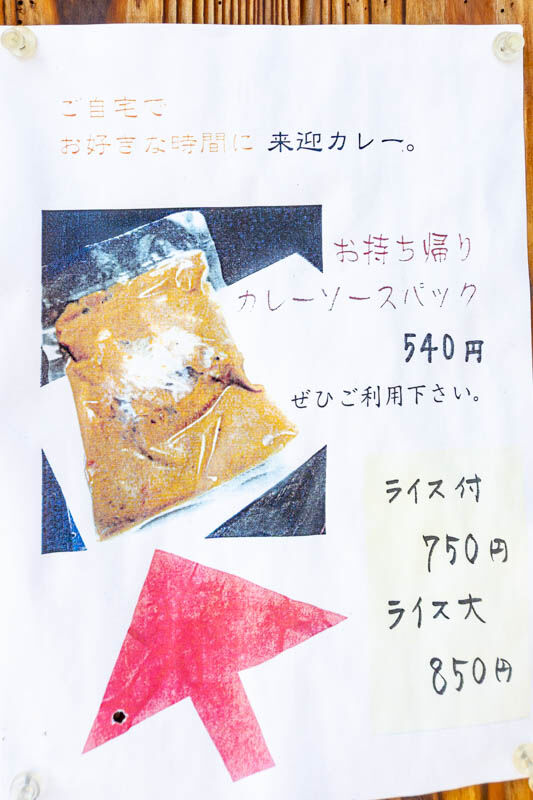 ご自宅で
お好きな時間に 来迎カレー。
お持ち帰り
カレーソースパック
540円
ぜひご利用下さい。
ライス付
750円
ライス大
850円